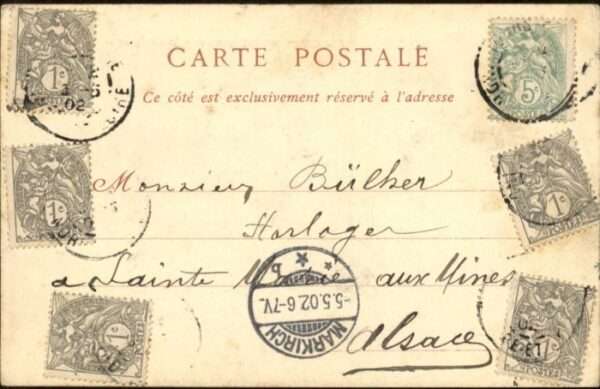 CARTE POSTALE
Ce côté est exclusivement réservé à l'adresse
1c
5c
1c
1c
1c
1c
02
Monsieur Bülher
Horloger
a Sainte Marie aux Mines
Alsace
MARKIRCH
-5.5.02.6-7V.
* b *